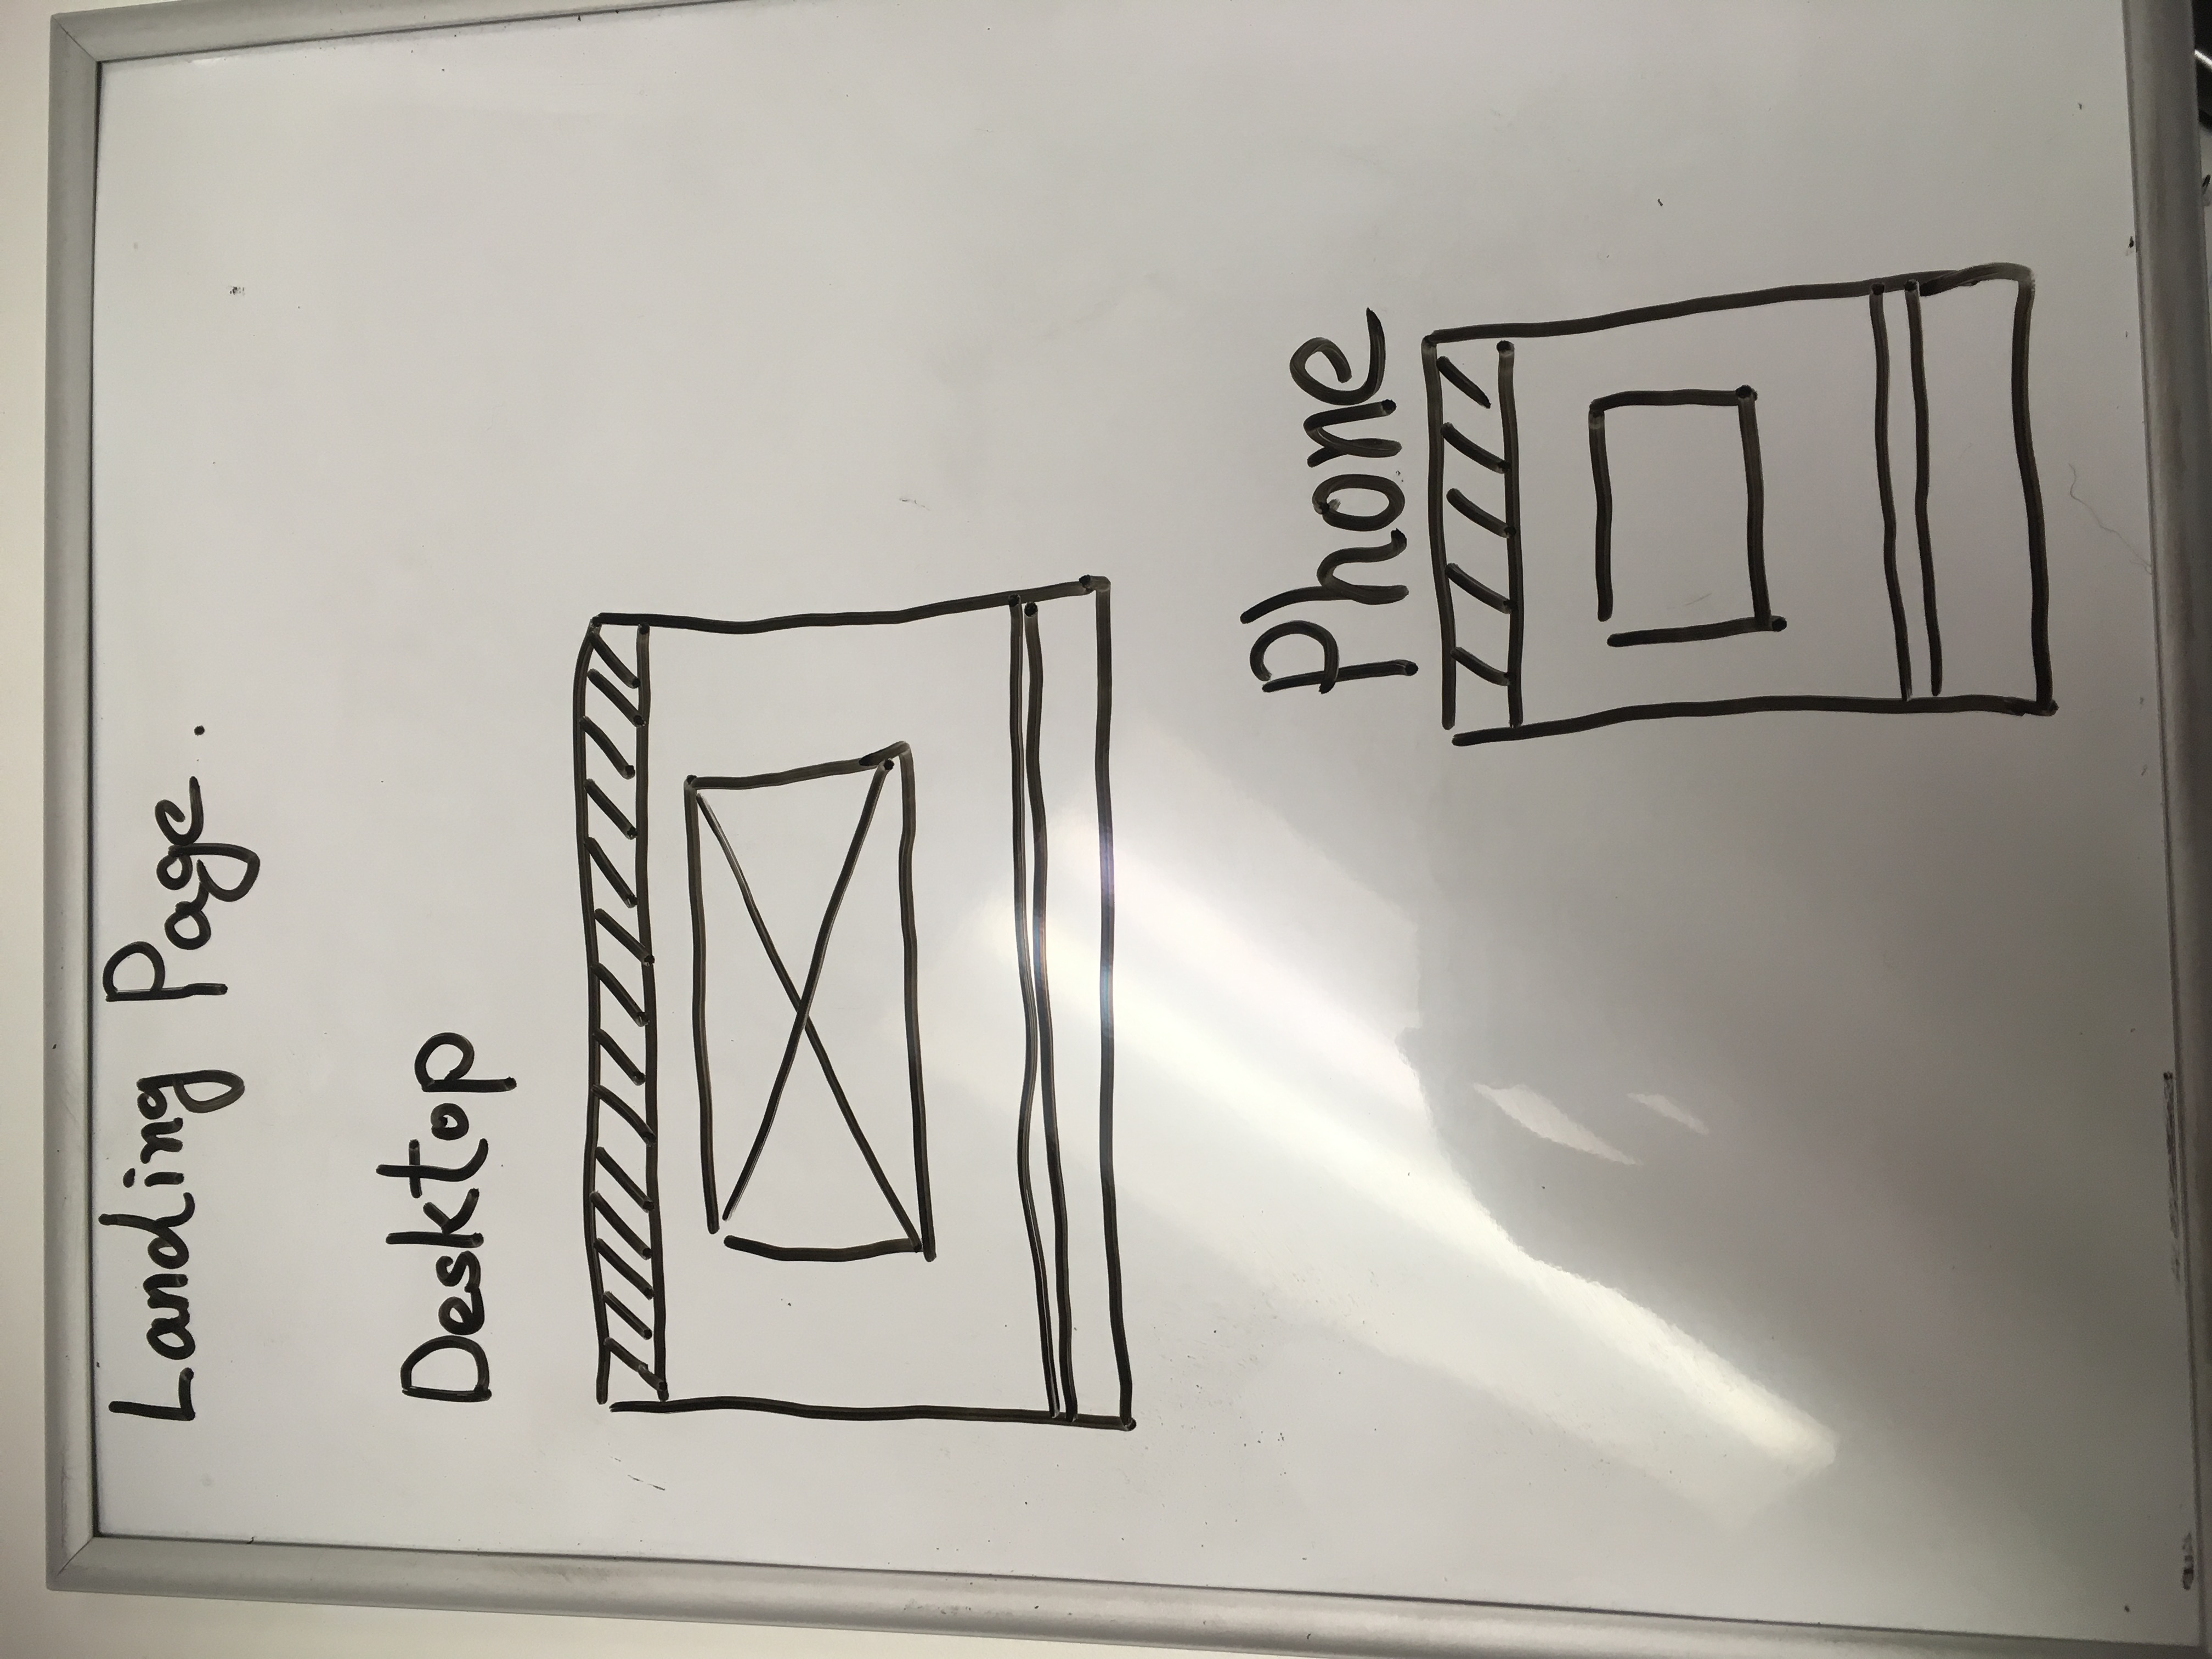 Landing Page.
Desktop
Phone